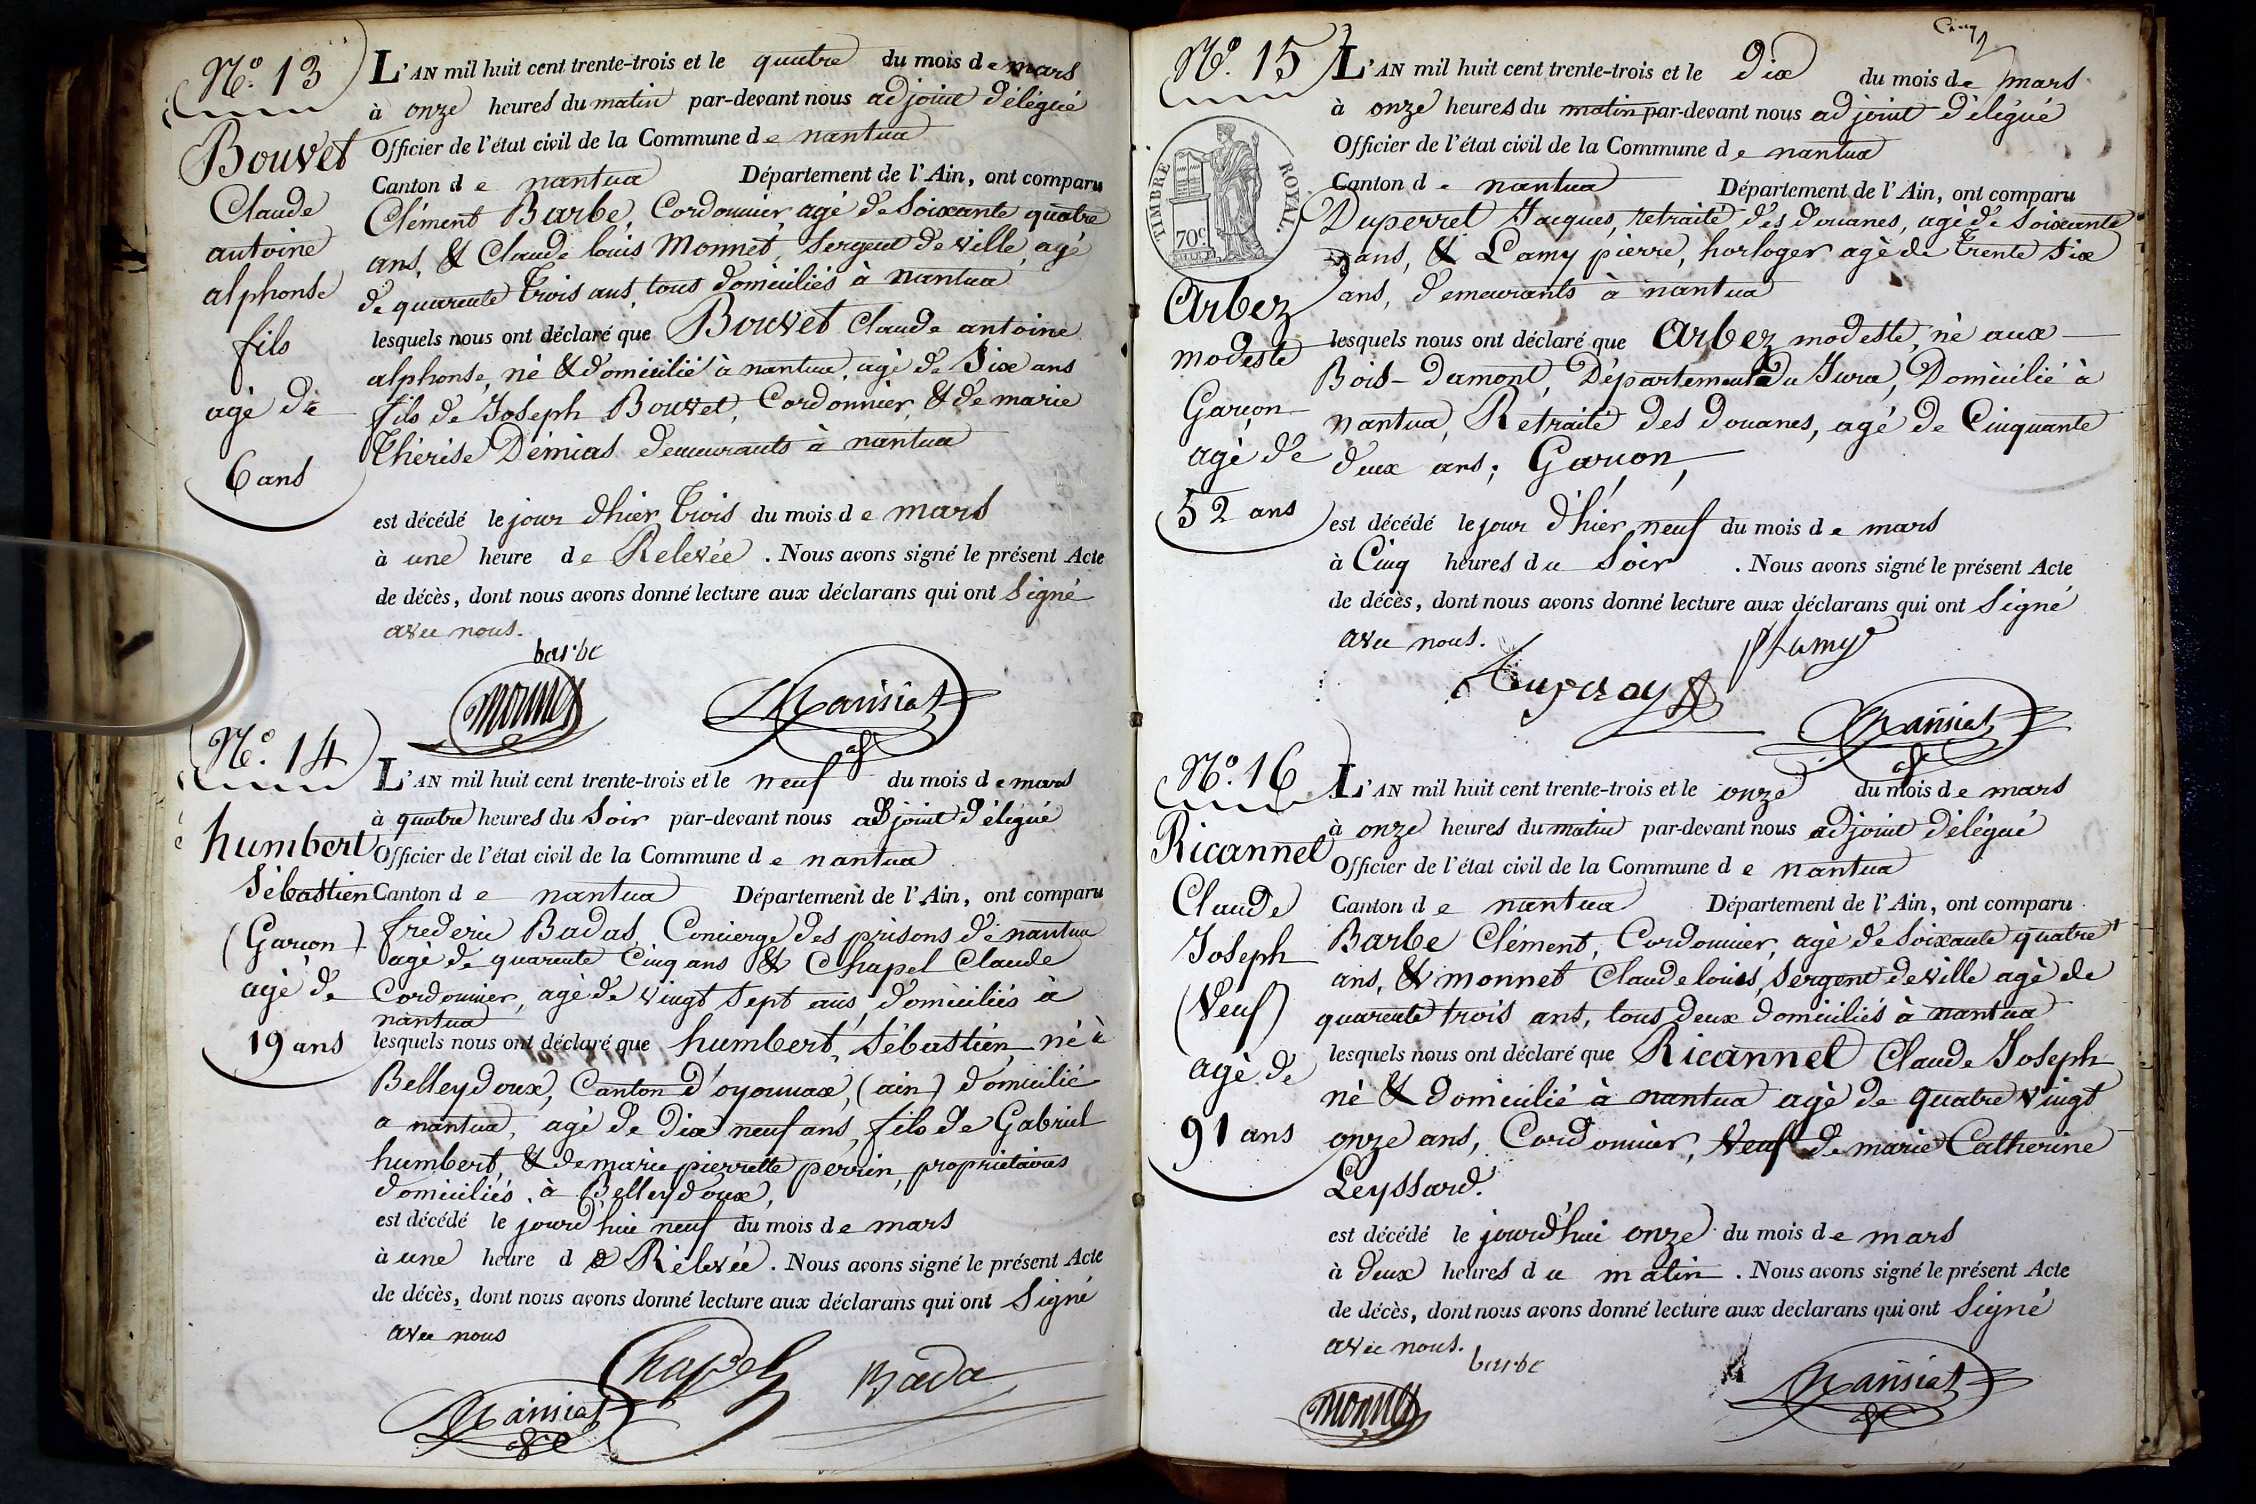 N.º 13
Bouvet
Claude
antoine
alphonse
fils
agé de
6 ans
L'AN mil huit cent trente-trois et le quatre du mois de mars
à onze heures du matin par-devant nous adjoint délégué
Officier de l'état civil de la Commune de nantua
Canton de nantua Département de l'Ain, ont comparu
Clément Barbe, Cordonnier agé de Soixante quatre
ans, & Claude louis Monnet, Sergent de ville, agé
de quarente trois ans, tous domiciliés à nantua
lesquels nous ont déclaré que Bouvet Claude antoine
alphonse, né & domicilié à nantua, agé de Six ans
fils de Joseph Bouvet, Cordonnier, & de marie
Thérèse Démias demeurants à nantua
est décédé le jour d'hier trois du mois de mars
à une heure de Relevée. Nous avons signé le présent Acte
de décès, dont nous avons donné lecture aux déclarans qui ont Signé
avec nous.
barbe
monnet
Mansiat
N.º 14
humbert
Sébastien
(Garçon)
agé de
19 ans
L'AN mil huit cent trente-trois et le neuf du mois de mars
à quatre heures du Soir par-devant nous adjoint délégué
Officier de l'état civil de la Commune de nantua
Canton de nantua Département de l'Ain, ont comparu
frederic Badas, Concierge des prisons de nantua
agé de quarente Cinq ans & Chapel Claude
Cordonnier, agé de vingt Sept ans, domiciliés à
nantua
lesquels nous ont déclaré que humbert, Sébastien, né à
Belleydoux, Canton d'oyonnax, (ain) domicilié
a nantua, agé de Dix neuf ans, fils de Gabriel
humbert, & de marie pierrette perrin, propriétaires
domiciliés à Belleydoux,
est décédé le jourd'hui neuf du mois de mars
à une heure de Rélevée. Nous avons signé le présent Acte
de décès, dont nous avons donné lecture aux déclarans qui ont Signé
avec nous
Chapel
Bada
Mansiat
Cinq
N.º 15
TIMBRE ROYAL.
70c
Arbez
modeste
Garçon
agé de
52 ans
L'AN mil huit cent trente-trois et le Dix du mois de mars
à onze heures du matin par-devant nous adjoint délégué
Officier de l'état civil de la Commune de nantua
Canton de nantua Département de l'Ain, ont comparu
Duperret Jacques, retraité des douanes, agé de Soixante
ans, & Lamy pierre, horloger agé de trente Six
ans, demeurants à nantua
lesquels nous ont déclaré que Arbez modeste, né aux
Bois-Damont, Département Du Jura, Domicilié à
nantua, Retraité des Douanes, agé de Cinquante
deux ans; Garçon,
est décédé le jour d'hier neuf du mois de mars
à Cinq heures du Soir. Nous avons signé le présent Acte
de décès, dont nous avons donné lecture aux déclarans qui ont Signé
avec nous.
plamy
Mansiat
N.º 16
Ricannel
Claude
Joseph
(Veuf)
agé de
91 ans
L'AN mil huit cent trente-trois et le onze du mois de mars
à onze heures du matin par-devant nous adjoint délégué
Officier de l'état civil de la Commune de nantua
Canton de nantua Département de l'Ain, ont comparu
Barbe Clément, Cordonnier, agé de Soixante quatre
ans, & monnet Claude louis, Sergent de ville agé de
quarente trois ans, tous deux domiciliés à nantua
lesquels nous ont déclaré que Ricannel Claude Joseph
né & domicilié à nantua agé de quatre vingt
onze ans, Cordonnier, Veuf de marie Catherine
Leyssard.
est décédé le jourd'hui onze du mois de mars
à deux heures du matin. Nous avons signé le présent Acte
de décès, dont nous avons donné lecture aux déclarans qui ont Signé
avec nous.
barbe
monnet
Mansiat